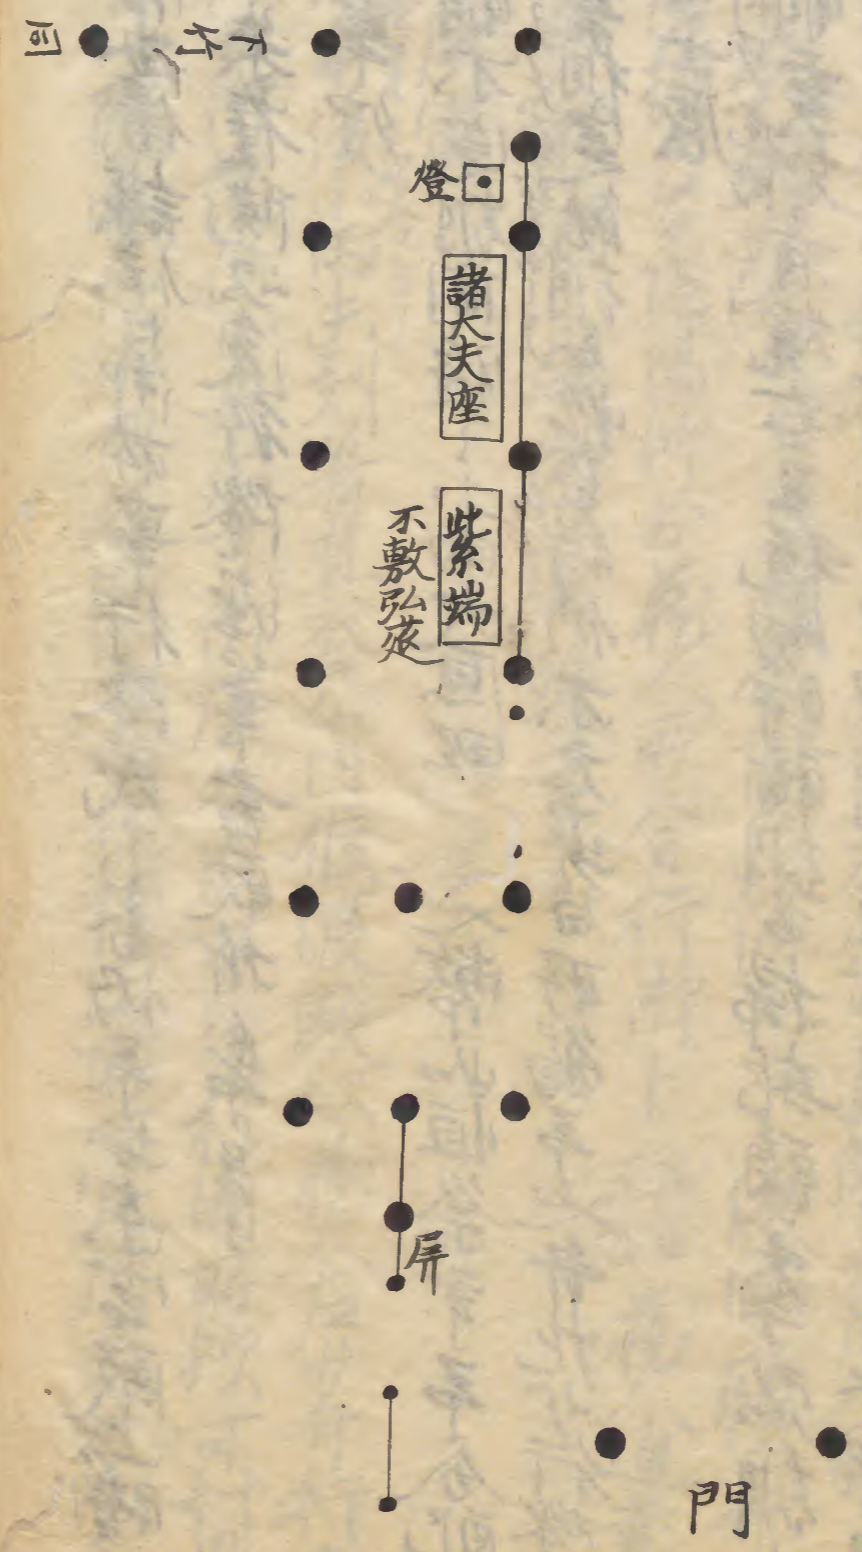 燈
諸大夫座
紫端
不敷弘莚
屏
門
下竹
同